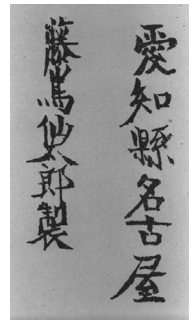 愛知縣名古屋
藤嶌仙太郎製